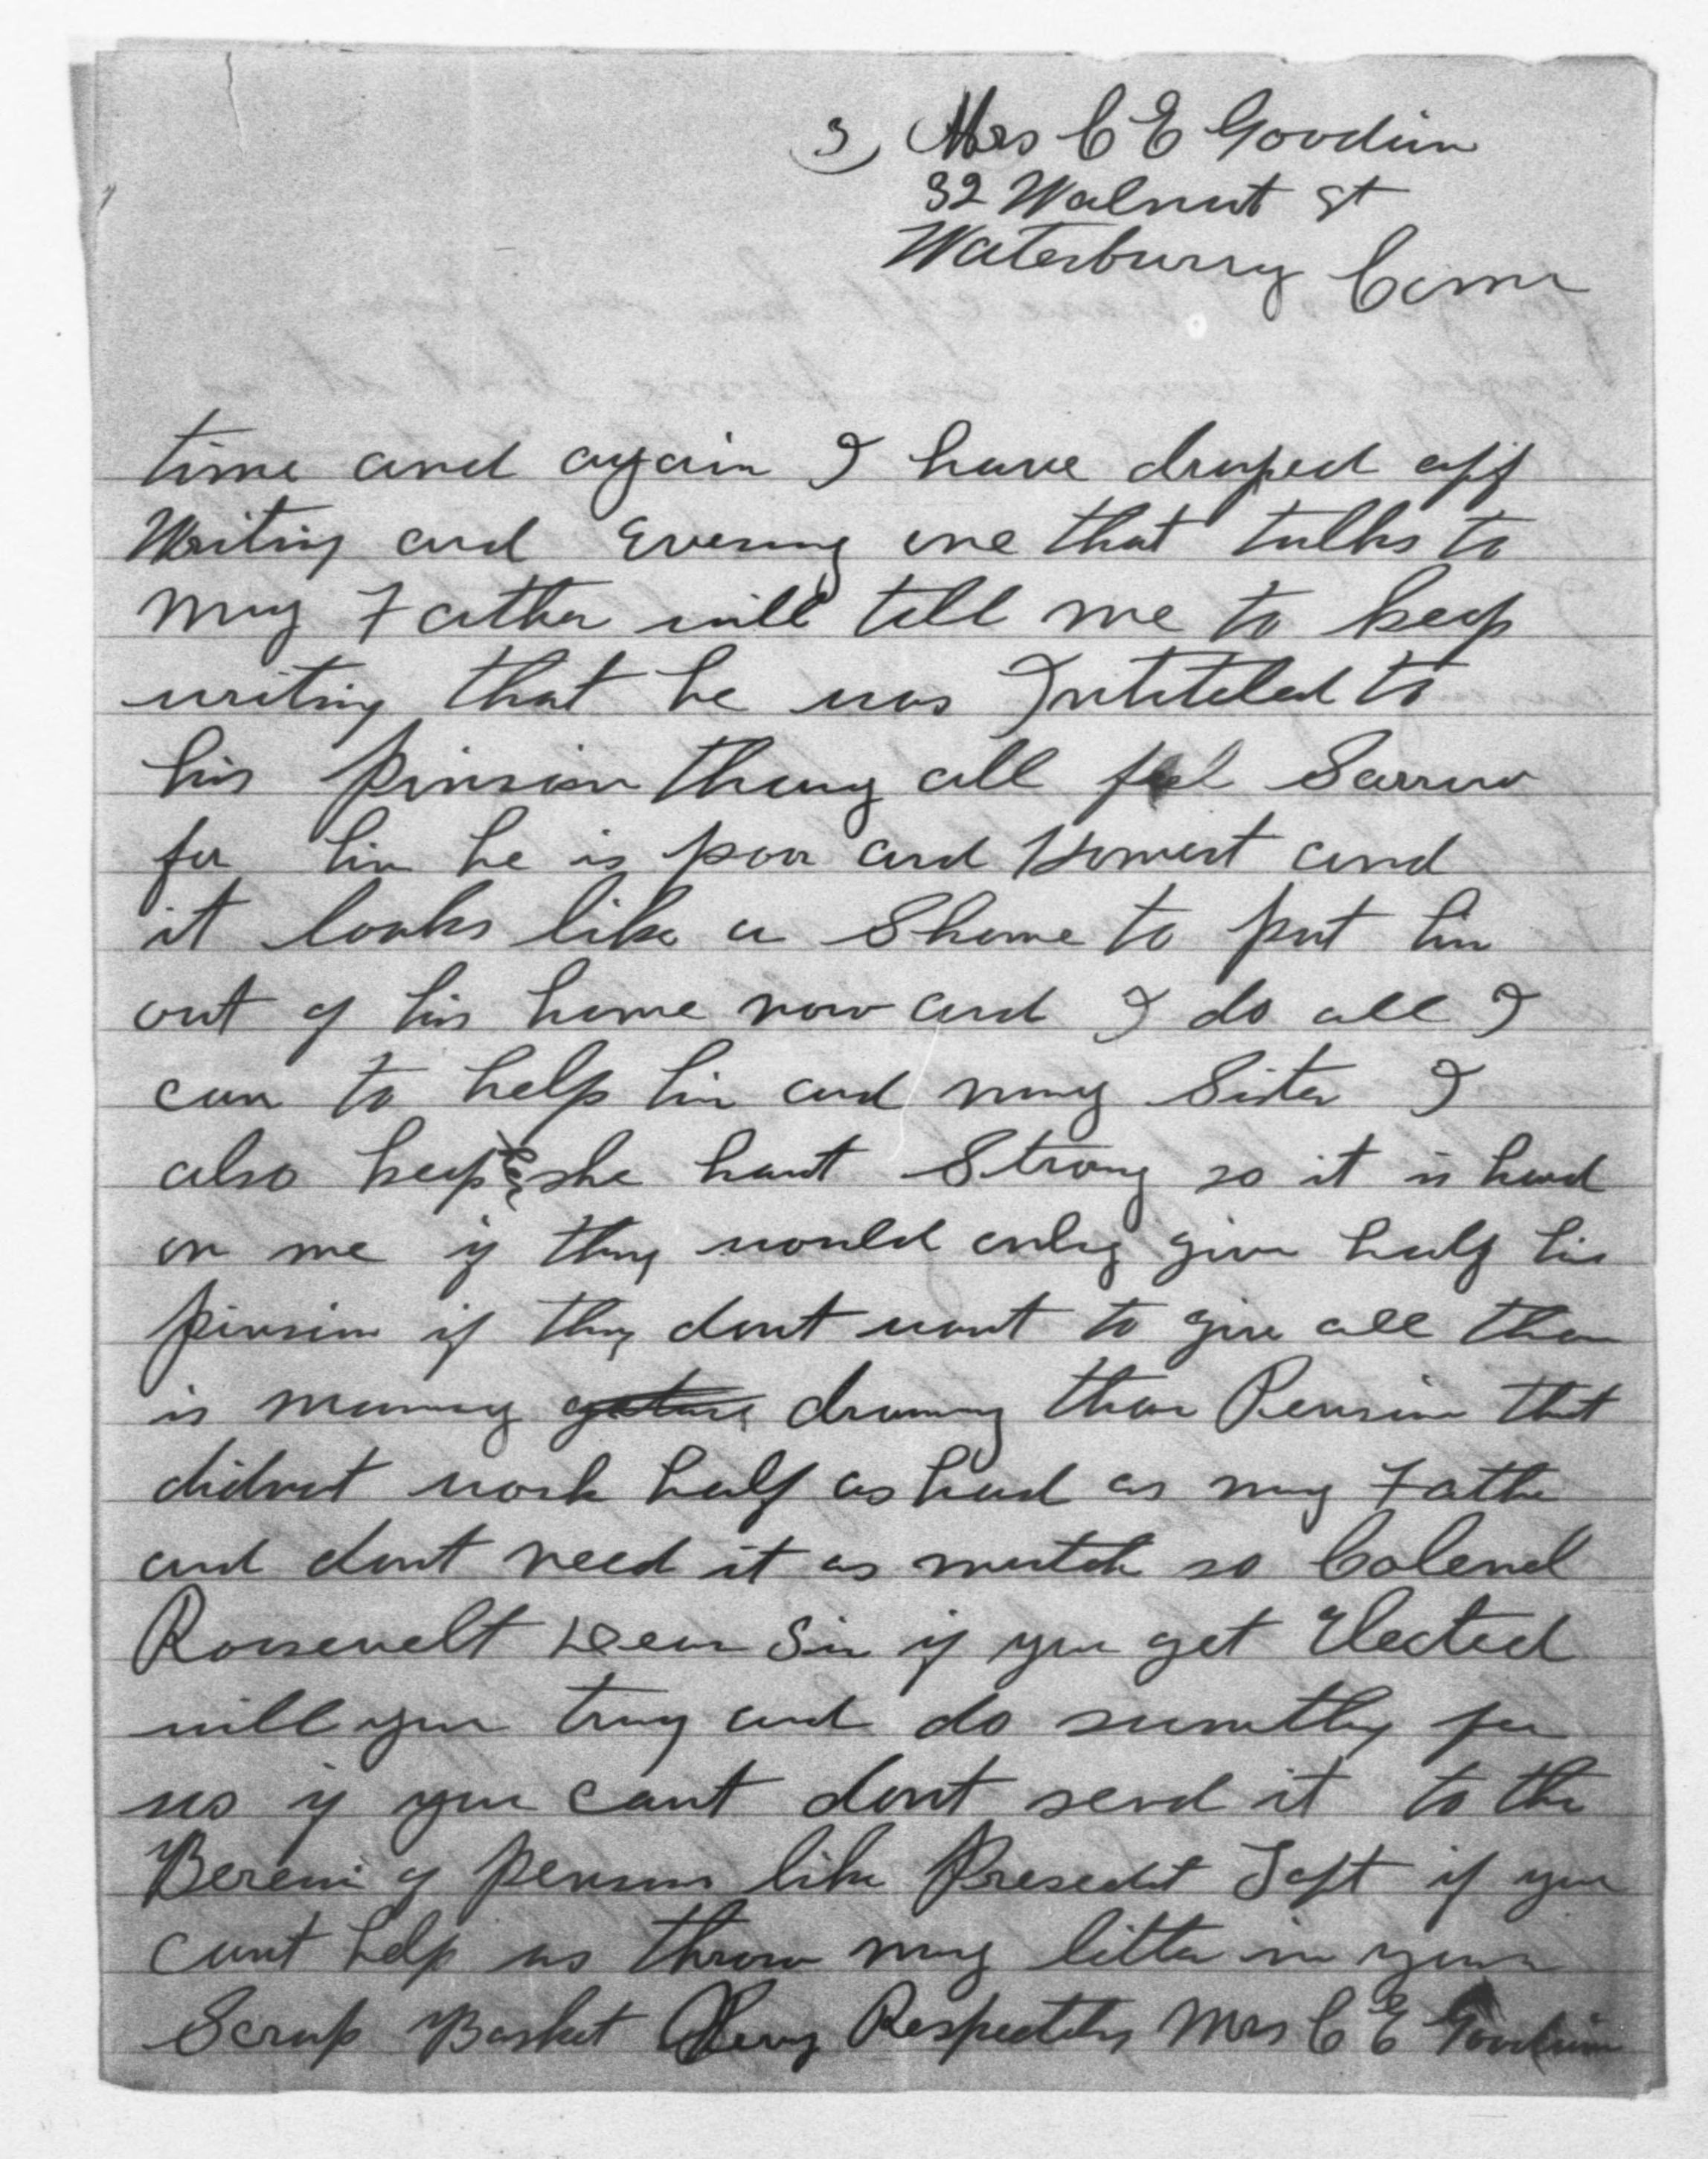 3) Mrs C E Goodwin
32 Walnut St
Waterburry Conn
time and again I have droped off
Writing and Evenry one that talks to
my Father will tell me to keep
writing that he was Intiteled to
his pinsion thay all feel Sarrow
for him he is poor and Honest and
it looks like a Shame to put him
out of his home now and I do all I
can to help him and my Sister I
also keep she hant Strong so it is hard
on me if thay would only give half his
pinsion if thay dont want to give all thar
is manny drawing thar Pension that
didnot work half as hard as my Father
and dont need it as mutch so Colenel
Roosevelt Dear Sir if you get Elected
will you try and do sumthing for
us if you cant dont send it to the
Bereau of pension like Presedet Taft if you
cant help us throw my litter in your
Scrap Basket Very Respectifly Mrs C E Goodwin